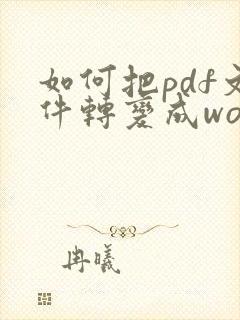 如何把pdf文
件轉變成wo
冉曦